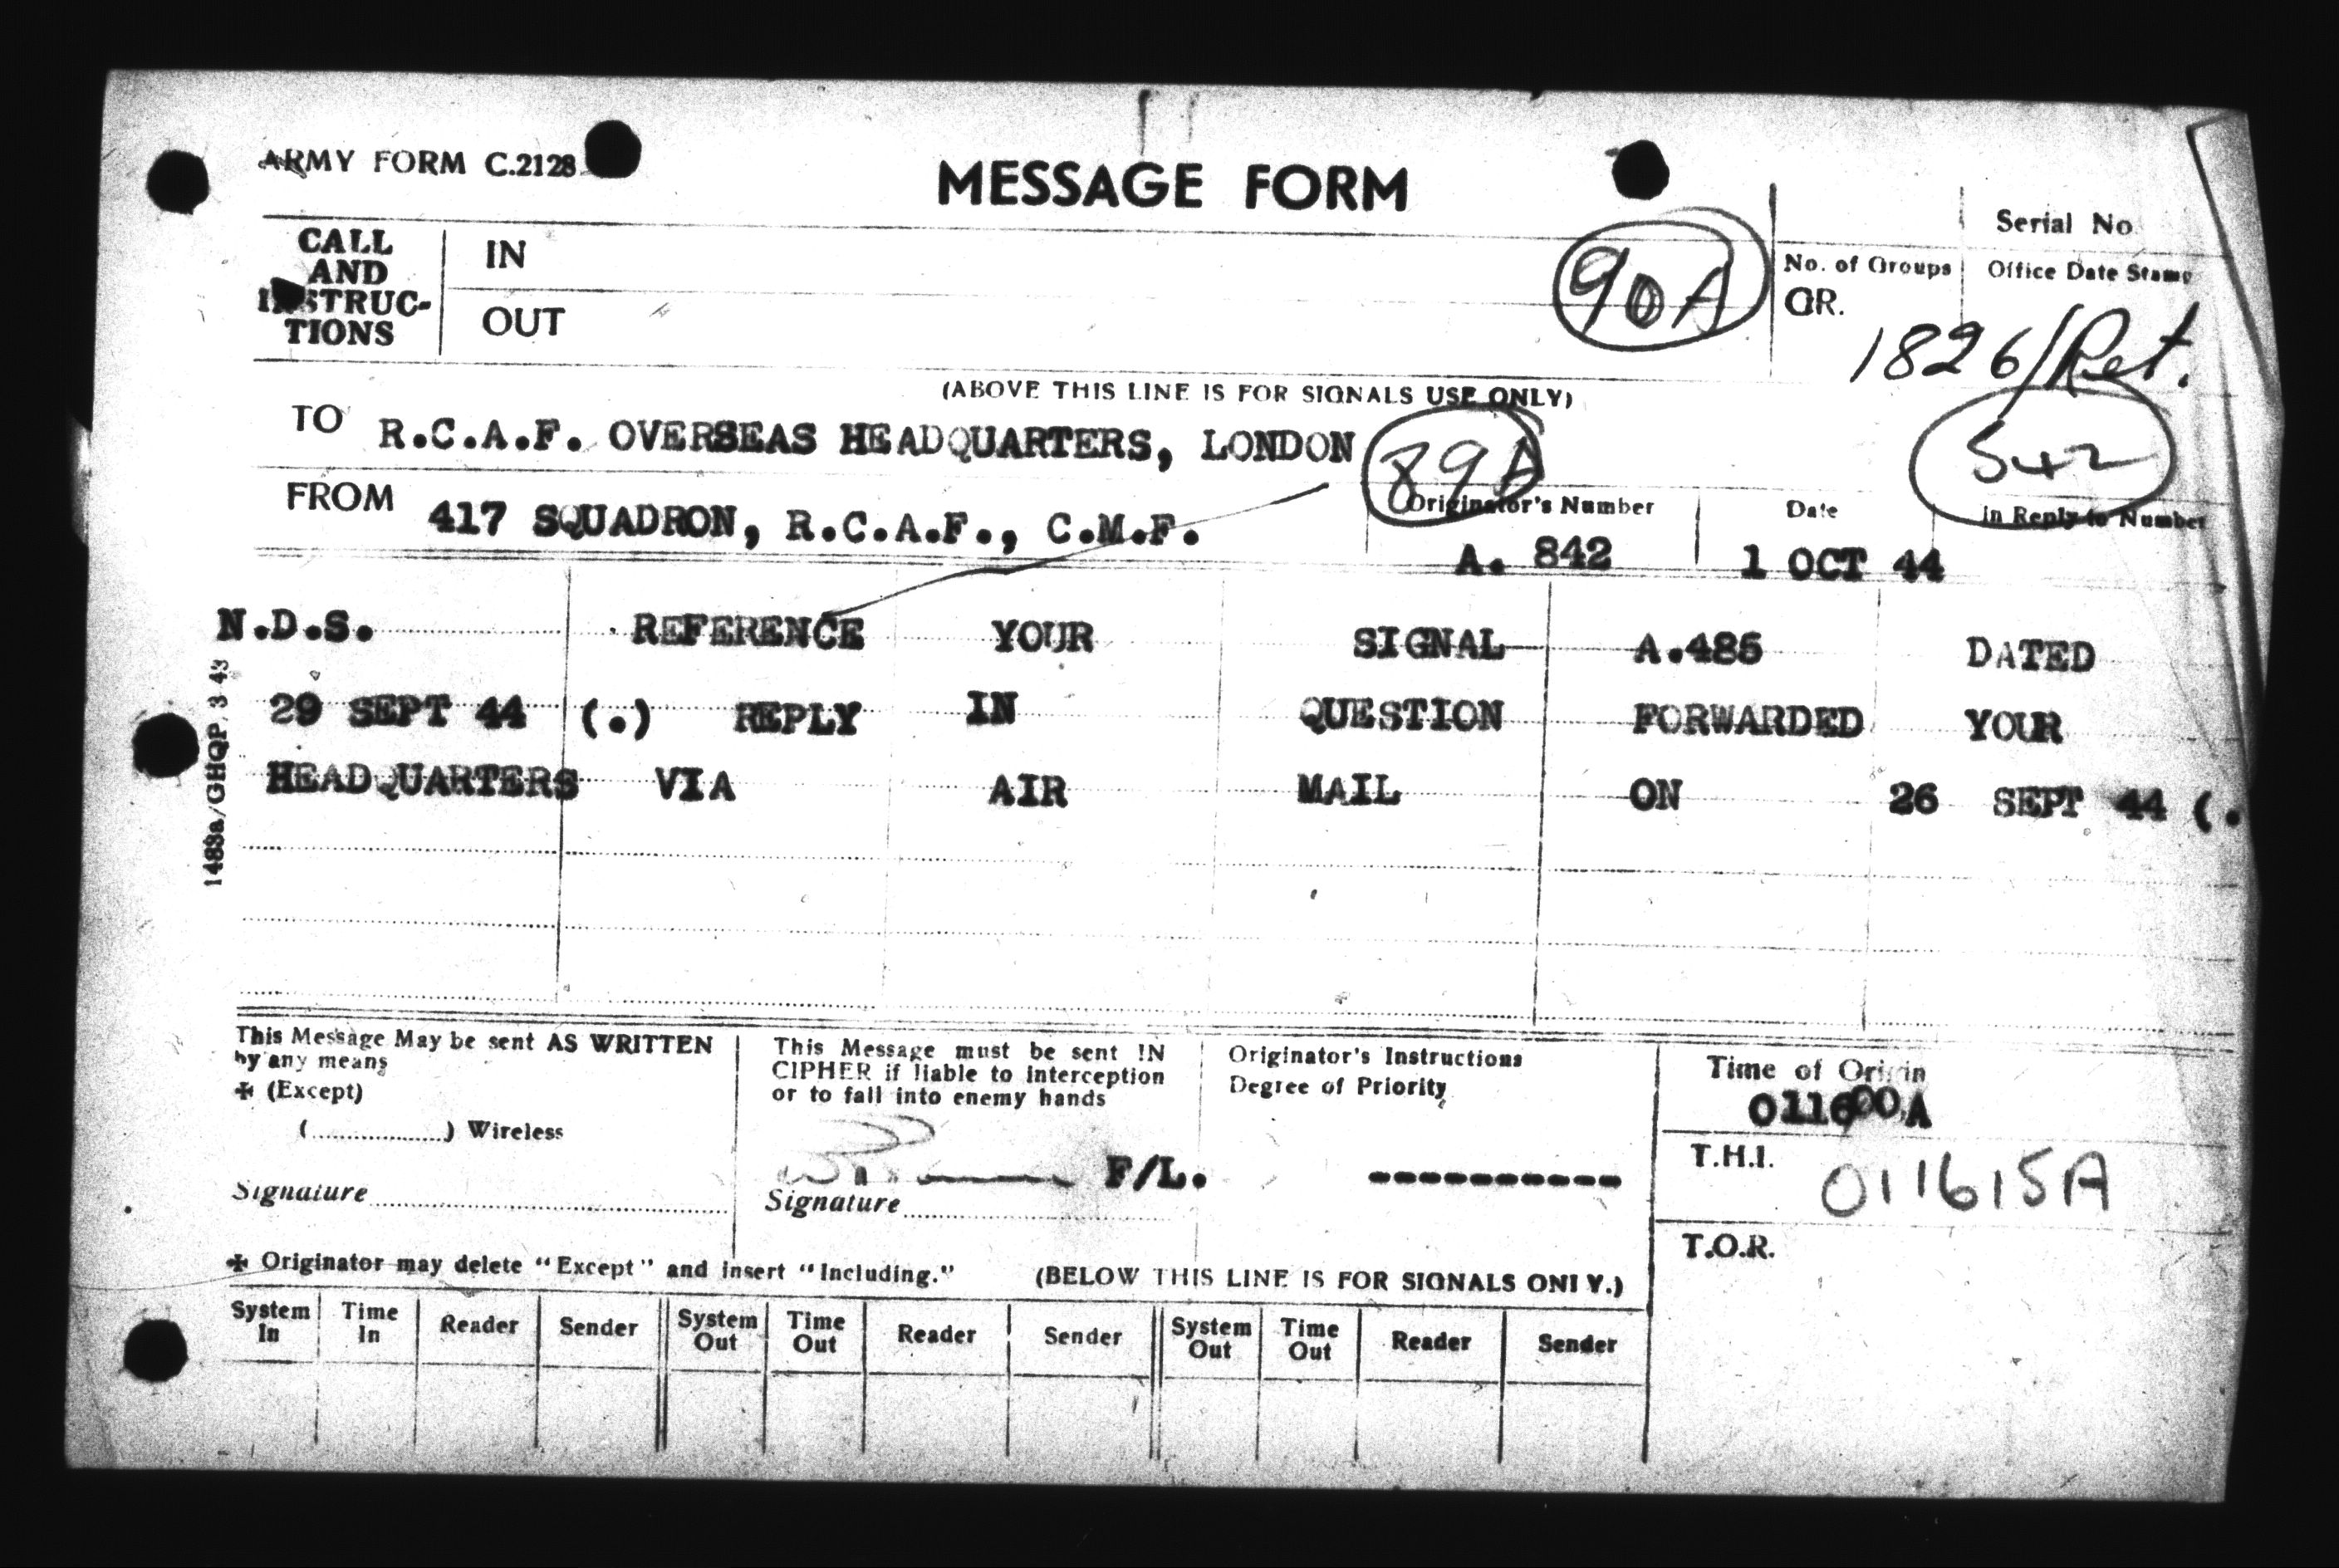 ARMY FORM C.2128
MESSAGE FORM
Serial No.
CALL AND INSTRUC- TIONS
IN
OUT
90A
No. of Groups
GR.
Office Date Stamp
1826/Ret.
(ABOVE THIS LINE IS FOR SIGNALS USE ONLY)
TO R.C.A.F. OVERSEAS HEADQUARTERS, LONDON
89A
542
FROM 417 SQUADRON, R.C.A.F., C.M.F.
Originator's Number
A. 842
Date
1 OCT 44
In Reply to Number
N.D.S. REFERENCE YOUR SIGNAL A.485 DATED
29 SEPT 44 (.) REPLY IN QUESTION FORWARDED YOUR
HEADQUARTERS VIA AIR MAIL ON 26 SEPT 44 (.
1483a/GHQP/3 43
This Message May be sent AS WRITTEN
by any means
✠ (Except)
(....................) Wireless
Signature
This Message must be sent IN
CIPHER if liable to interception
or to fall into enemy hands
F/L.
Signature
Originator's Instructions
Degree of Priority
----------
Time of Origin
011600A
T.H.I. 011615A
T.O.R.
✠ Originator may delete "Except" and insert "Including."
(BELOW THIS LINE IS FOR SIGNALS ONLY.)
System In Time In Reader Sender System Out Time Out Reader Sender System Out Time Out Reader Sender